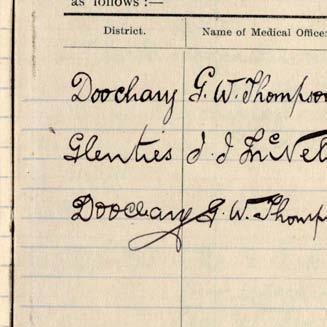 as follows :—
District. Name of Medical Office
Doochary G. W. Thompson
Glenties J. J. McNel
Doochary G. W. Thomp